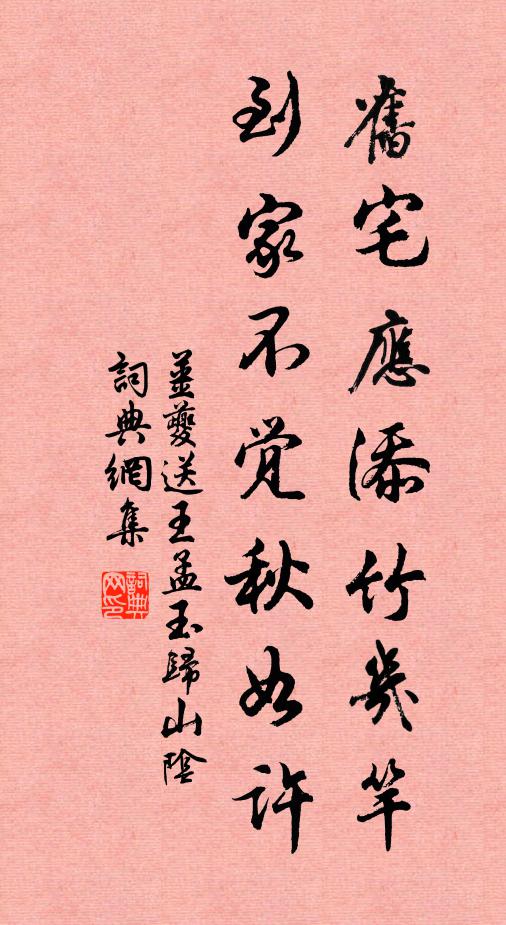 舊宅應添竹幾竿
到家不覺秋如許
姜夔送王孟玉歸山陰
詞典網集
詞典
网印